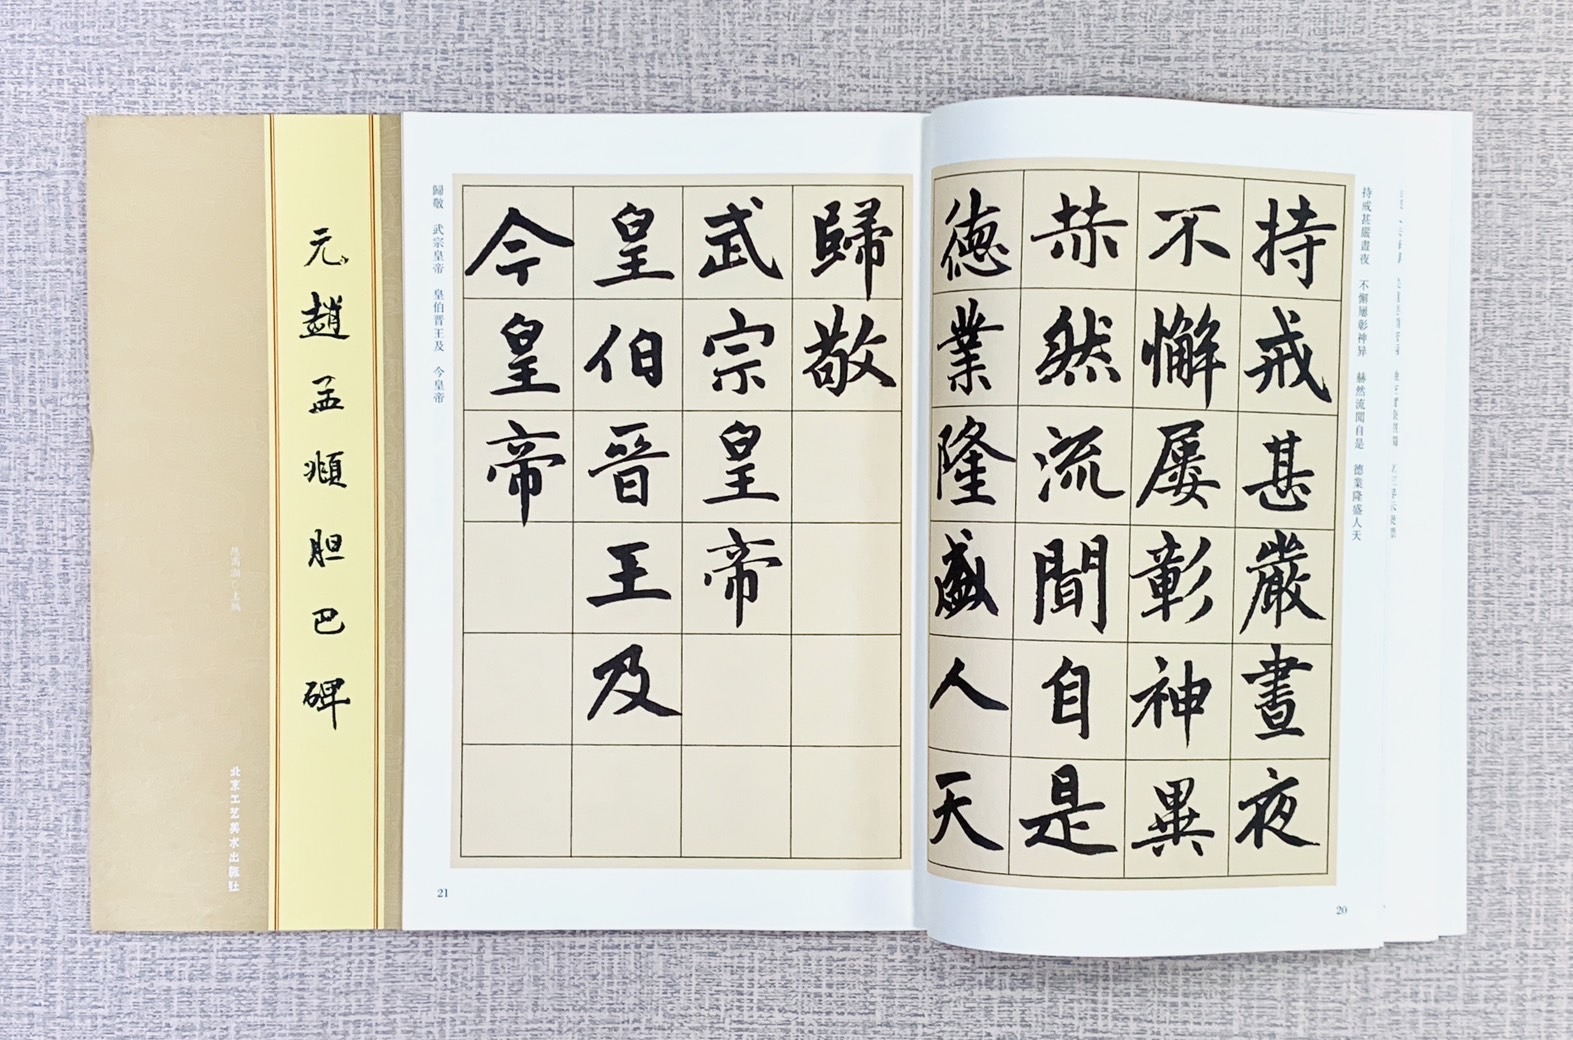 持戒甚嚴晝夜
不懈屢彰神異
赫然流聞自是
德業隆盛人天
持戒甚嚴晝夜　不懈屢彰神异　赫然流聞自是　德業隆盛人天
20
歸敬
武宗皇帝
皇伯晉王及
今皇帝
歸敬　武宗皇帝　皇伯晋王及　今皇帝
21
元趙孟頫胆巴碑
北京工艺美术出版社